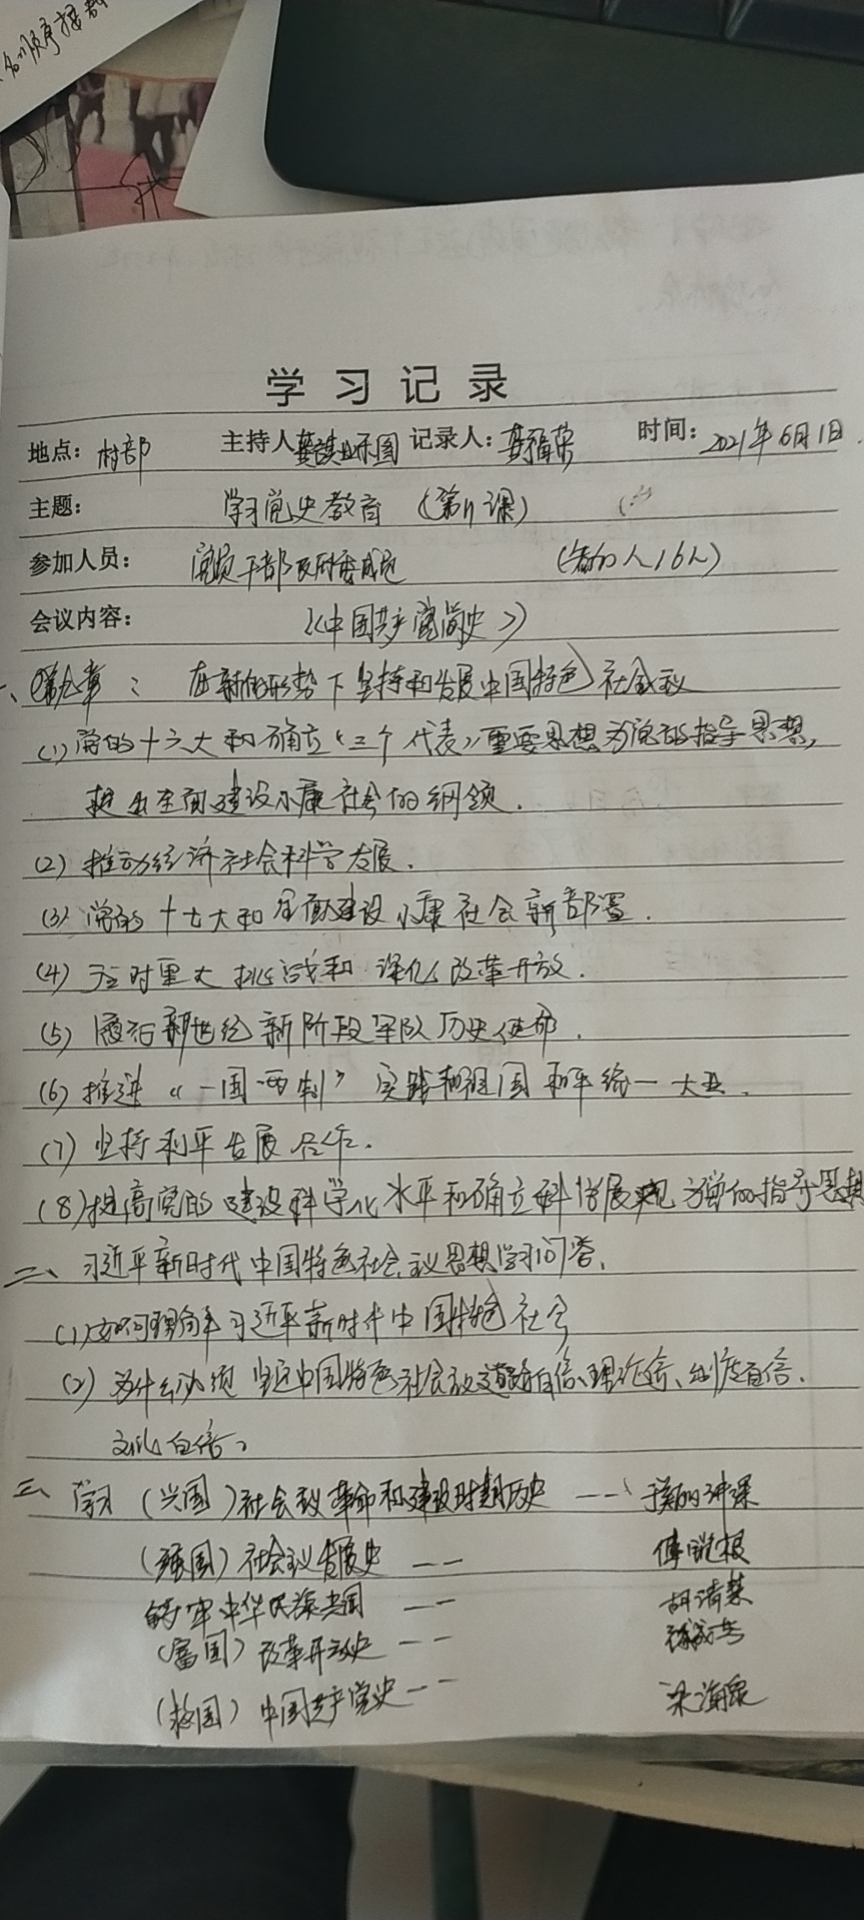 学习记录
地点：村部 主持人 记录人： 时间：2021年6月1日
主题： 学习党史教育（第11课）
参加人员： 党员干部及村委成员 （参加人16人）
会议内容： 《中国共产党简史》
一、第九章：在新的形势下坚持和发展中国特色社会主义
(1)党的十六大和确立“三个代表”重要思想为党的指导思想，
提出全面建设小康社会的纲领.
(2) 推动经济社会科学发展.
(3) 党的十七大和全面建设小康社会新部署.
(4) 应对重大挑战和深化改革开放.
(5) 履行新世纪新阶段军队历史使命.
(6) 推进“一国两制”实践和祖国和平统一大业.
(7) 坚持和平发展合作.
(8)提高党的建设科学化水平和确立科学发展观为党的指导思想
二、习近平新时代中国特色社会主义思想学习问答、
(1)如何理解习近平新时代中国特色社会
(2) 为什么必须坚定中国特色社会主义道路自信、理论自信、制度自信.
文化自信。
三、学习（兴国）社会主义革命和建设时期历史 —— 讲课
（强国）社会主义发展史 ——
铸牢中华民族共同 —— 胡清荣
（富国）改革开放史 ——
（救国）中国共产党史 —— 梁海